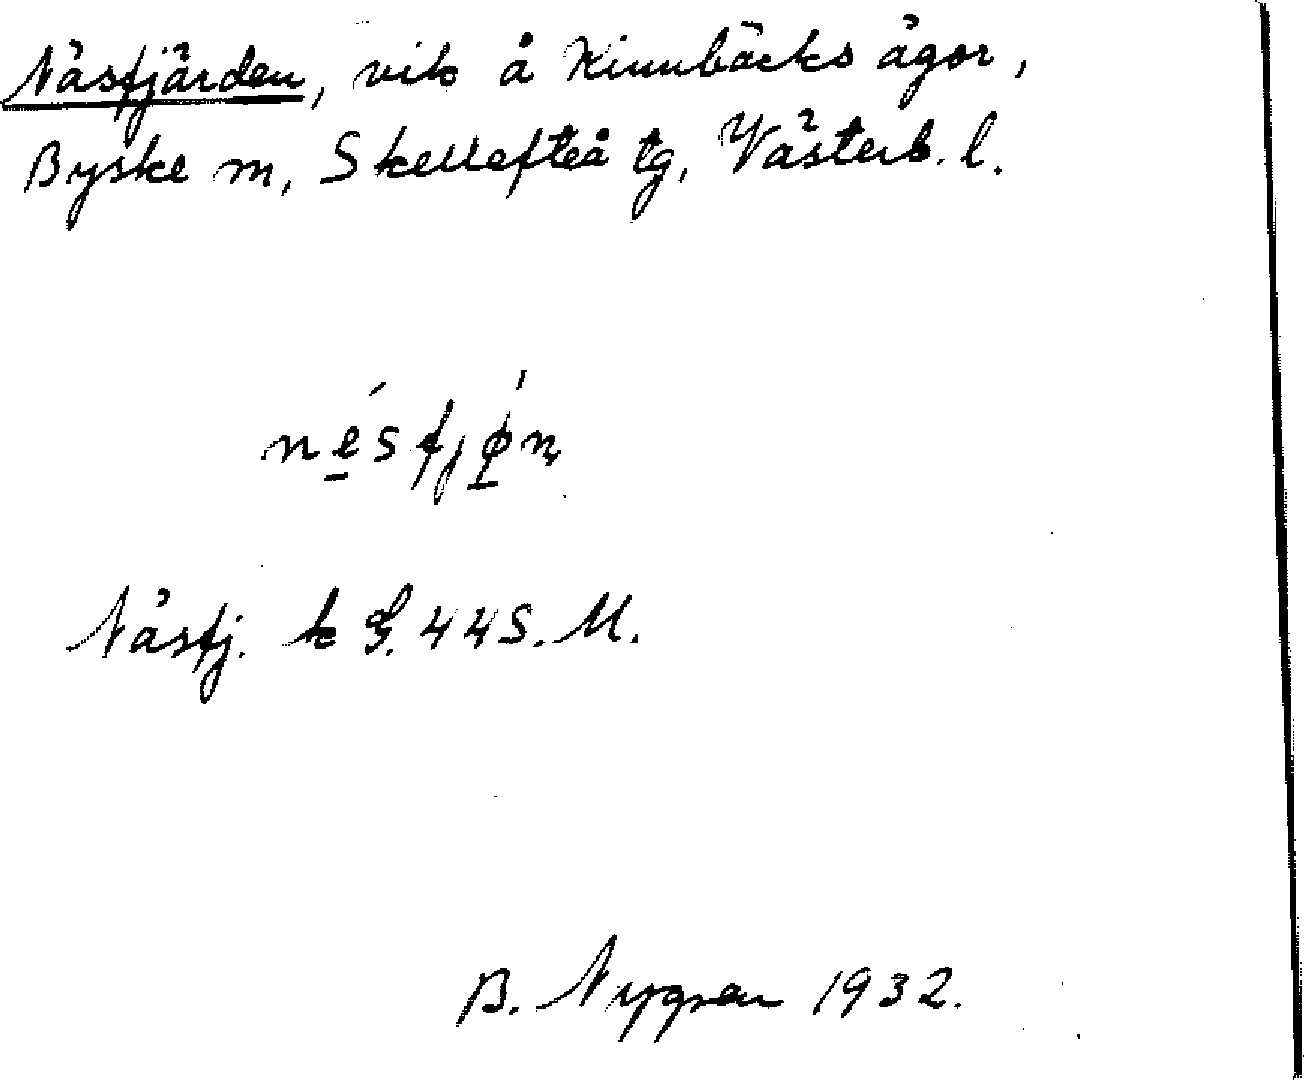 Näsfjärden, vik å Kinnbäcks ägor,
Byske m, Skellefteå tg, Västerb. l.
né̱sfjǿ̱ɳ
Näsfj. k G. 44 S. M.
B. Nygren 1932.